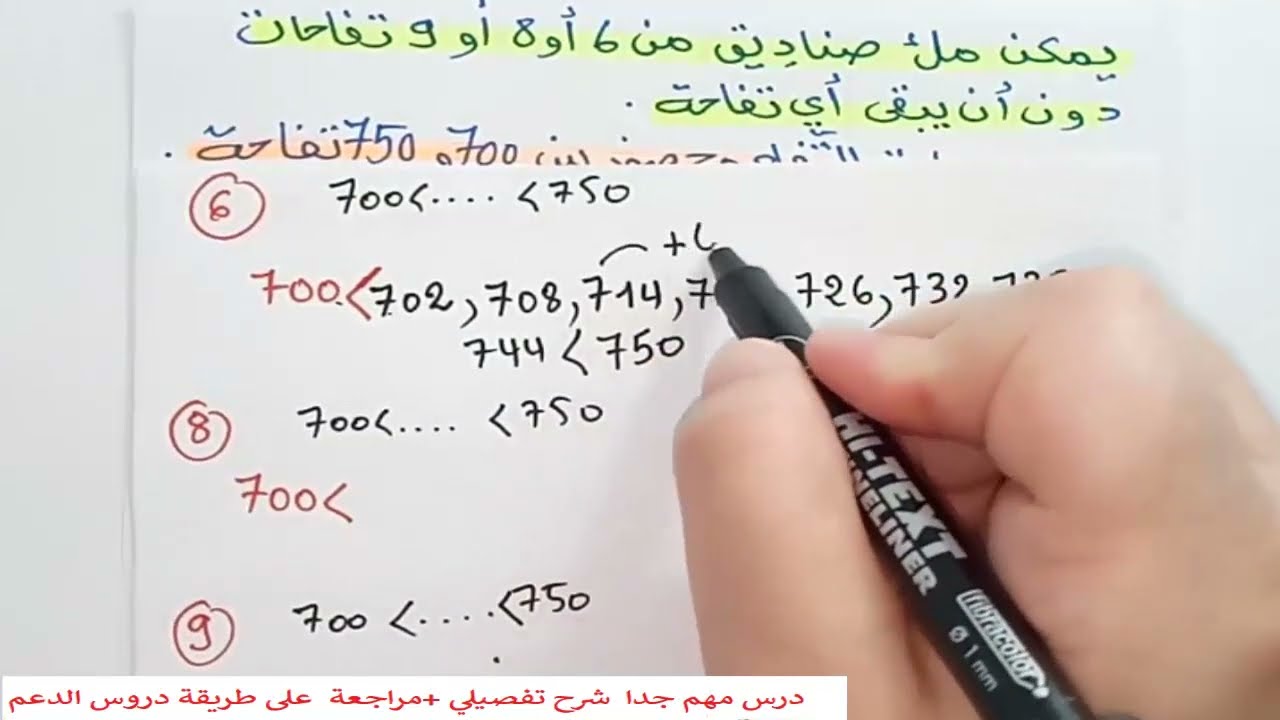 يمكن ملئ صناديق من 6 أو 8 أو 9 تفاحات
دون أن يبقى أي تفاحة .
700 و 750 تفاحة .
6 700<.... <750
+
700<702,708,714,7 726,732,73
744<750
8 700<.... <750
700<
9 700<....<750
HI-TEXT
FINELINER
fibracolor
Ø 1 mm
درس مهم جدا شرح تفصيلي +مراجعة على طريقة دروس الدعم